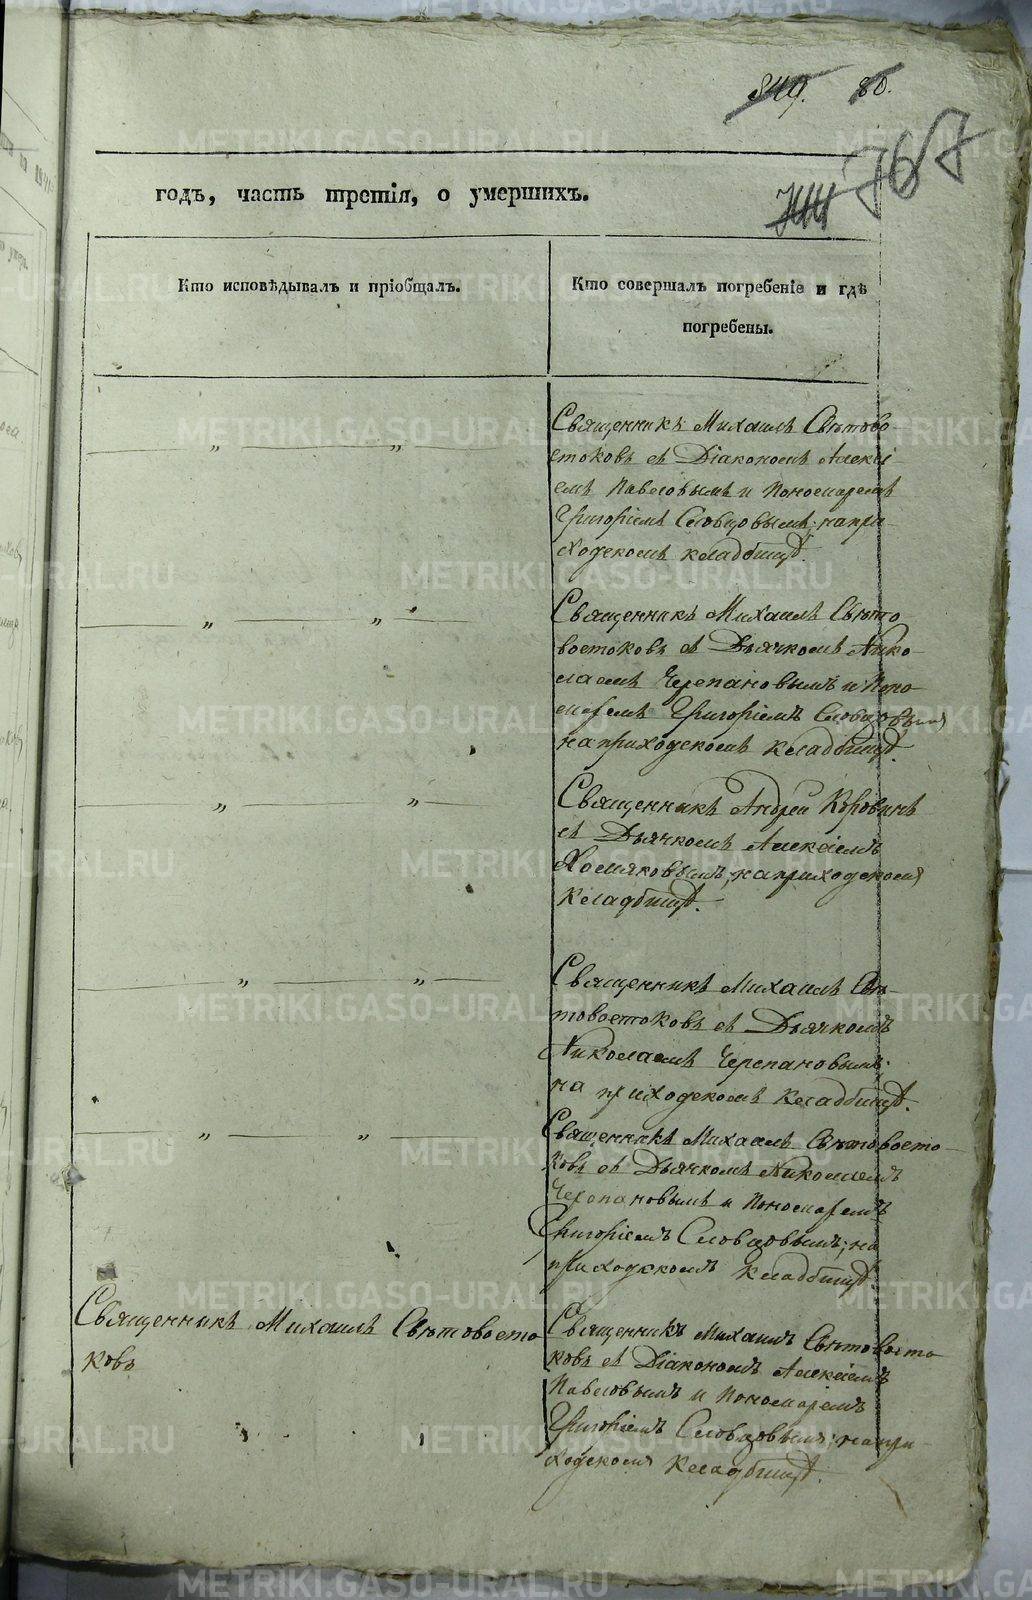 849. 80.
767
годъ, часть третія, о умершихъ.
Кто исповѣдывалъ и пріобщалъ.
Кто совершалъ погребеніе и гдѣ
погребены.
Священникъ Михаилъ Свѣтово-
стоковъ съ Діакономъ Алексі-
емъ Павловымъ и Пономаремъ
Григоріемъ Словцовымъ; на при-
ходскомъ кладбищѣ.
Священникъ Михаилъ Свѣто-
востоковъ съ Дьячкомъ Нико-
лаемъ Черепановымъ и Поно-
маремъ Григоріемъ Словцовымъ
на приходскомъ кладбищѣ.
Священникъ Андрей Коровинъ
съ Дьячкомъ Алексіемъ
Хомяковымъ; на приходскомъ
кладбищѣ.
Священникъ Михаилъ Свѣ-
товостоковъ съ Дьячкомъ
Николаемъ Черепановымъ;
на приходскомъ кладбищѣ.
Священникъ Михаилъ Свѣтовосто-
ковъ съ Дьячкомъ Николаемъ
Черепановымъ и Пономаремъ
Григоріемъ Словцовымъ; на
приходскомъ кладбищѣ.
Священникъ Михаилъ Свѣтовосто-
ковъ
Священникъ Михаилъ Свѣтовосто-
ковъ съ Діакономъ Алексіемъ
Павловымъ и Пономаремъ
Григоріемъ Словцовымъ; на при-
ходскомъ кладбищѣ.
METRIKI.GASO-URAL.RU